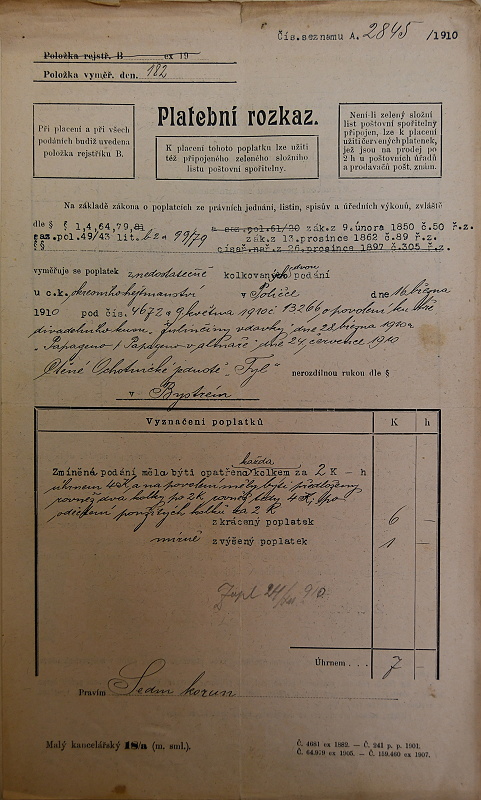 Čís. seznamu A. 2845 /1910
Položka rejstř. B ex 19
Položka vyměř. den. 182
Při placení a při všech
podáních budiž uvedena
položka rejstříku B.
Platební rozkaz.
K placení tohoto poplatku lze užiti
též připojeného zeleného složního
listu poštovní spořitelny.
Není-li zelený složní
list poštovní spořitelny
připojen, lze k placení
užíti červených platenek,
jež jsou na prodej po
2 h u poštovních úřadů
a prodavačů pošt. znám.
Na základě zákona o poplatcích ze právních jednání, listin, spisův a úředních výkonů, zvláště
dle § § 1,4,64,79,81 a saz.pol.61/20 zák.z 9.února 1850 č.50 ř.z.
saz.pol.49/43 lit. b2 a 99/79 zák.z 13.prosince 1862 č.89 ř.z.
§§ císař.nař.z 26.prosince 1897 č.305 ř.z.
vyměřuje se poplatek z nedostatečně kolkovaných dvou podání
u c. k. okresního hejtmanství v Poličce dne 16. března
1910 pod čís. 4672 a 9. května 1910 č 13266 o povolení ku
divadelním kusu „ vdavky" dne 28. března 1910 a
„Papageno" dne 24. července 1910
Ctěné Ochotnické jednotě „Tyl" nerozdílnou rukou dle §
v Bystrém
Vyznačení poplatků K h
Zmíněná podání měla býti opatřena každá kolkem za 2 K — h
úhrnem 4K, a na povolení měly býti předloženy
rovněž dva kolky po 2K, rovněž tedy 4 K, po
odečtení použitých kolků za 2 K
zkrácený poplatek 6 —
mírně zvýšený poplatek 1 —
Úhrnem . . . 7 —
Pravím Sedm korun
Malý kancelářský 18/a (m. sml.).
Č. 4681 ex 1882. — Č. 241 p. p. 1901.
Č. 64.979 ex 1905. — Č. 159.460 ex 1907.